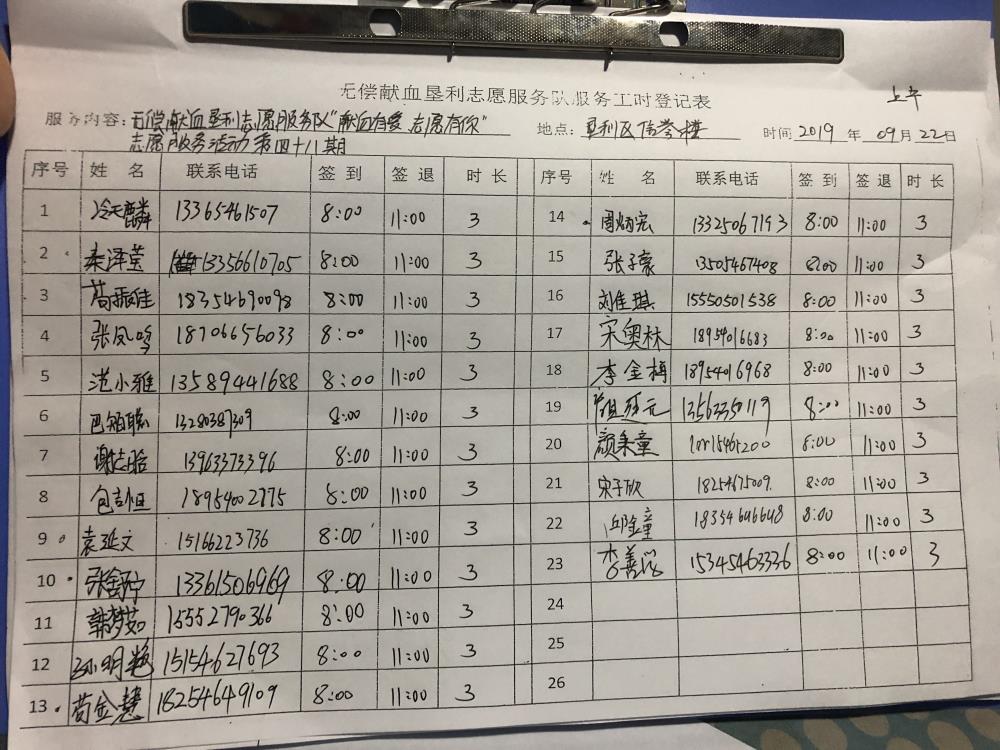 上午
无偿献血垦利志愿服务队服务工时登记表
服务内容：无偿献血垦利志愿服务队"献血有爱 志愿有你" 地点：垦利区信誉楼 时间 2019 年 09月 22日
志愿服务活动第四十八期
序号 姓 名 联系电话 签 到 签 退 时 长 序号 姓 名 联系电话 签 到 签 退 时 长
1 冷天麟 13365461507 8:00 11:00 3 14 周炳宏 13325067193 8:00 11:00 3
2 秦泽莹 13356610705 8:00 11:00 3 15 张子豪 13505467408 8:00 11:00 3
3 18354690098 8:00 11:00 3 16 刘佳琪 15550501538 8:00 11:00 3
4 张凤鸣 18706656033 8:00 11:00 3 17 宋奥林 18954016683 8:00 11:00 3
5 范小雅 13589441688 8:00 11:00 3 18 李金梅 18954016968 8:00 11:00 3
6 13280387309 8:00 11:00 3 19 8:00 11:00 3
7 13963373396 8:00 11:00 3 20 8:00 11:00 3
8 18954002775 8:00 11:00 3 21 宋子欣 8:00 11:00 3
9 袁延文 15166223736 8:00 11:00 3 22 邱金童 18354646648 8:00 11:00 3
10 13361506969 8:00 11:00 3 23 李善 15345463336 8:00 11:00 3
11 韩梦茹 15552790366 8:00 11:00 3 24
12 孙明艳 15154627693 8:00 11:00 3 25
13 苟金慧 18254649109 8:00 11:00 3 26